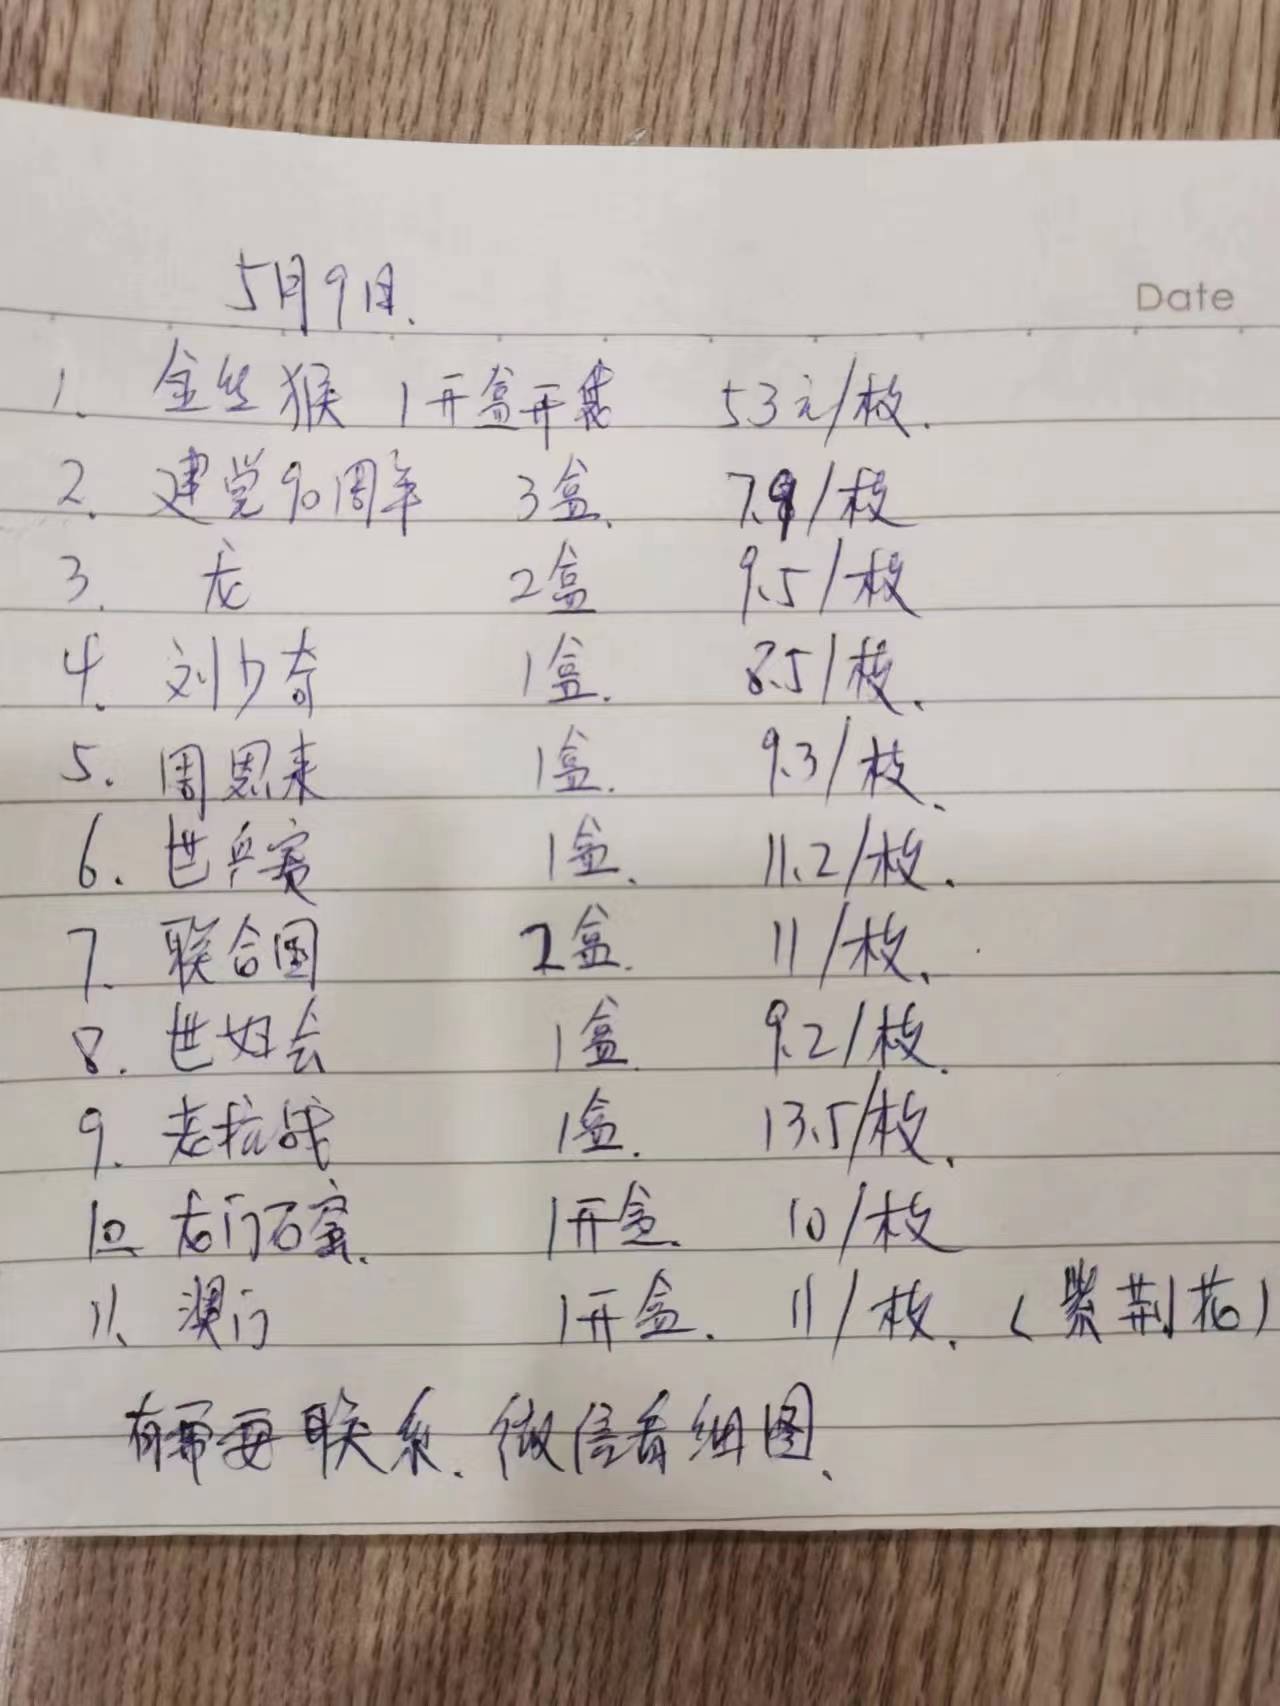 Date
5月9日.
1. 金丝猴 1开盒开袋 53元/枚.
2. 建党90周年 3盒. 7.9/枚
3. 龙 2盒 9.5/枚
4. 刘少奇 1盒. 8.5/枚.
5. 周恩来 1盒. 9.3/枚.
6. 世乒赛 1盒. 11.2/枚.
7. 联合国 2盒. 11/枚.
8. 世妇会 1盒. 9.2/枚.
9. 老抗战 1盒. 13.5/枚.
10. 龙门石窟. 1开盒. 10/枚
11. 澳门 1开盒. 11/枚. (紫荆花)
有需要联系. 微信看细图.